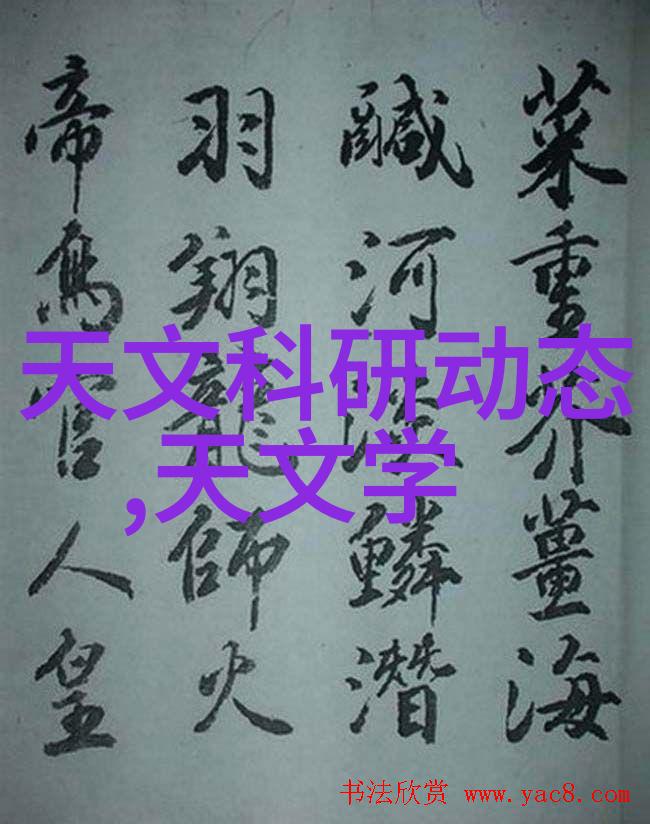 菜重芥薑海
鹹河淡鱗潛
羽翔龍師火
帝鳥官人皇
天文科研动态
,天文学
书法欣赏 www.yac8.com